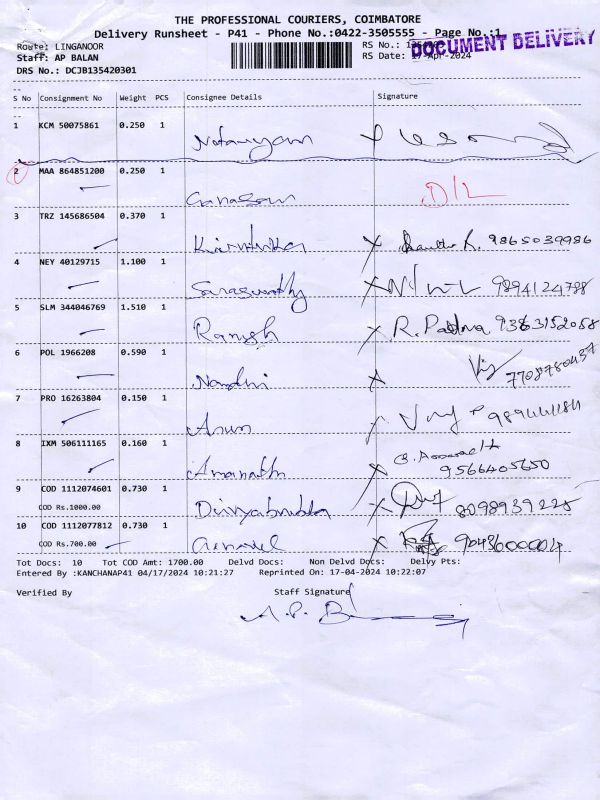 THE PROFESSIONAL COURIERS, COIMBATORE
Delivery Runsheet - P41 - Phone No.:0422-3505555 - Page No.:1
DOCUMENT DELIVERY
Route: LINGANOOR RS No.:
Staff: AP BALAN RS Date: 17-Apr-2024
DRS No.: DCJB135420301
S No Consignment No Weight PCS Consignee Details Signature
1 KCM 50075861 0.250 1
2 MAA 864851200 0.250 1
D/L
3 TRZ 145686504 0.370 1
9865039986
4 NEY 40129715 1.100 1
Saraswathy 9894124788
5 SLM 344046769 1.510 1
Ramesh R. Padma 9363152058
6 POL 1966208 0.590 1
Nandhi 7708780437
7 PRO 16263804 0.150 1
Arun
8 IXM 506111165 0.160 1
Amarnath 9566405650
9 COD 1112074601 0.730 1
COD Rs.1000.00 8098939225
10 COD 1112077812 0.730 1
COD Rs.700.00 9043600004
Tot Docs: 10 Tot COD Amt: 1700.00 Delvd Docs: Non Delvd Docs: Delvy Pts:
Entered By :KANCHANAP41 04/17/2024 10:21:27 Reprinted On: 17-04-2024 10:22:07
Verified By Staff Signature
A.P. B